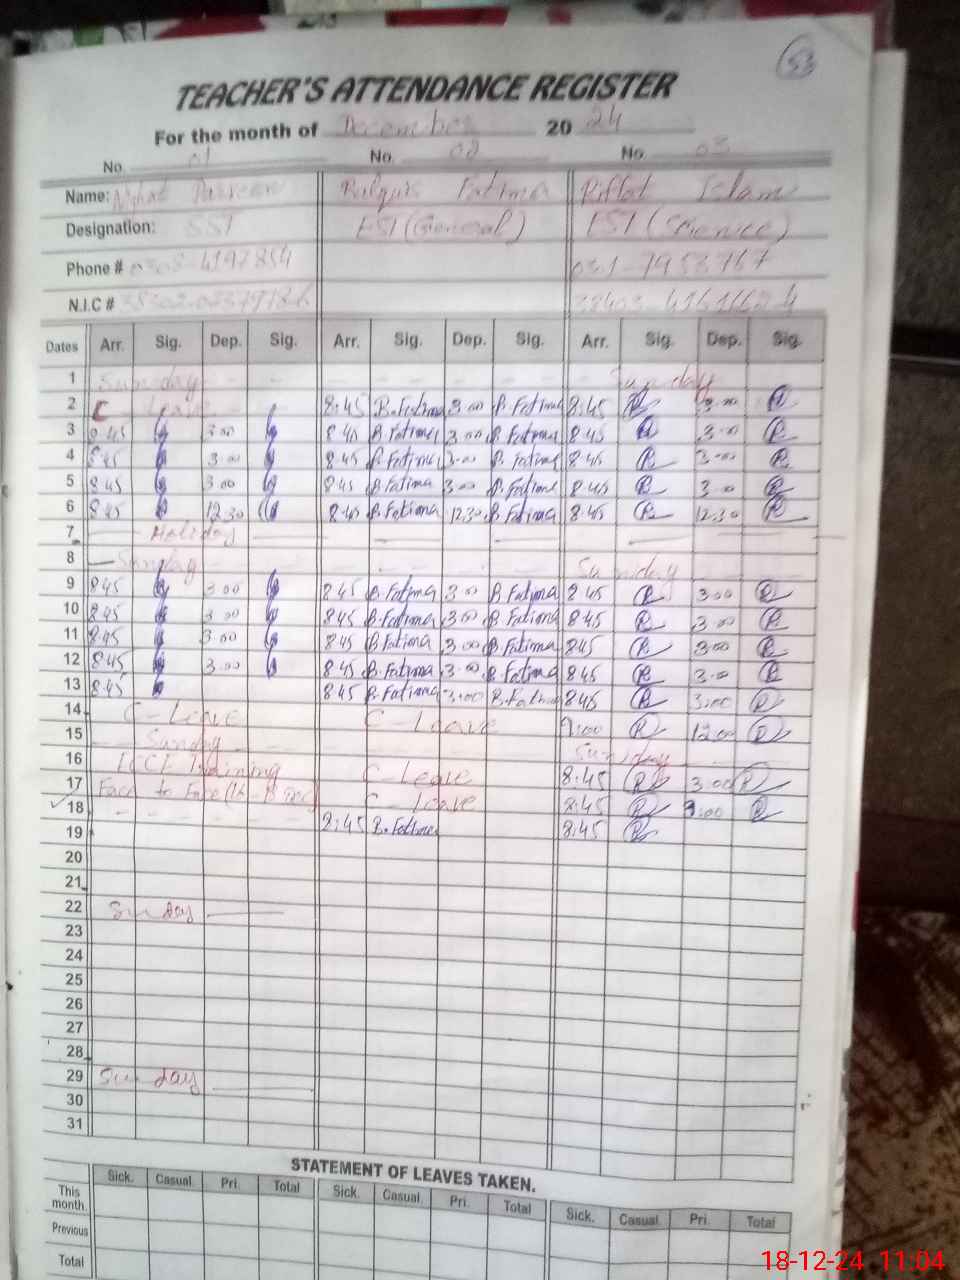 53
TEACHER'S ATTENDANCE REGISTER
For the month of December 2024
No. 01 No. 02 No. 03
Name: Fatima Riffat Islam
Designation: SST EST (General) EST (Science)
Phone # 0308-4197854
N.I.C #
Dates Arr. Sig. Dep. Sig. Arr. Sig. Dep. Sig. Arr. Sig. Dep. Sig.
1 Sunday Sunday
2 C - Leave 8:45 B.Fatima 3.00 B.Fatima 8:45 R 3.00 R
3 8.45 3.00 8.45 B.Fatima 3.00 B.Fatima 8.45 R 3.00 R
4 8.45 3.00 8.45 B.Fatima 3.00 B.Fatima 8.45 R 3.00 R
5 8.45 3.00 8.45 B.Fatima 3.00 B.Fatima 8.45 R 3.00 R
6 8.45 12.30 8.45 B.Fatima 12.30 B.Fatima 8.45 R 12.30 R
7 Holiday
8 Sunday Sunday
9 8.45 3.00 8.45 B.Fatima 3.00 B.Fatima 8.45 R 3.00 R
10 8.45 3.00 8.45 B.Fatima 3.00 B.Fatima 8.45 R 3.00 R
11 8.45 3.00 8.45 B.Fatima 3.00 B.Fatima 8.45 R 3.00 R
12 8.45 3.00 8.45 B.Fatima 3.00 B.Fatima 8.45 R 3.00 R
13 8.45 8.45 B.Fatima 3.00 B.Fatima 8.45 R 3.00 R
14 C - Leave C - Leave 9:00 R 12.00 R
15 Sunday Sunday
16 Training C - Leave 8:45 R 3.00 R
17 Face to Face C - Leave 8:45 R 3.00 R
18 8:45 B.Fatima 8:45 R
19
20
21
22 Sunday
23
24
25
26
27
28
29 Sunday
30
31
STATEMENT OF LEAVES TAKEN.
Sick. Casual. Pri. Total Sick. Casual. Pri. Total Sick. Casual. Pri. Total
This month.
Previous
Total
18-12-24 11:04